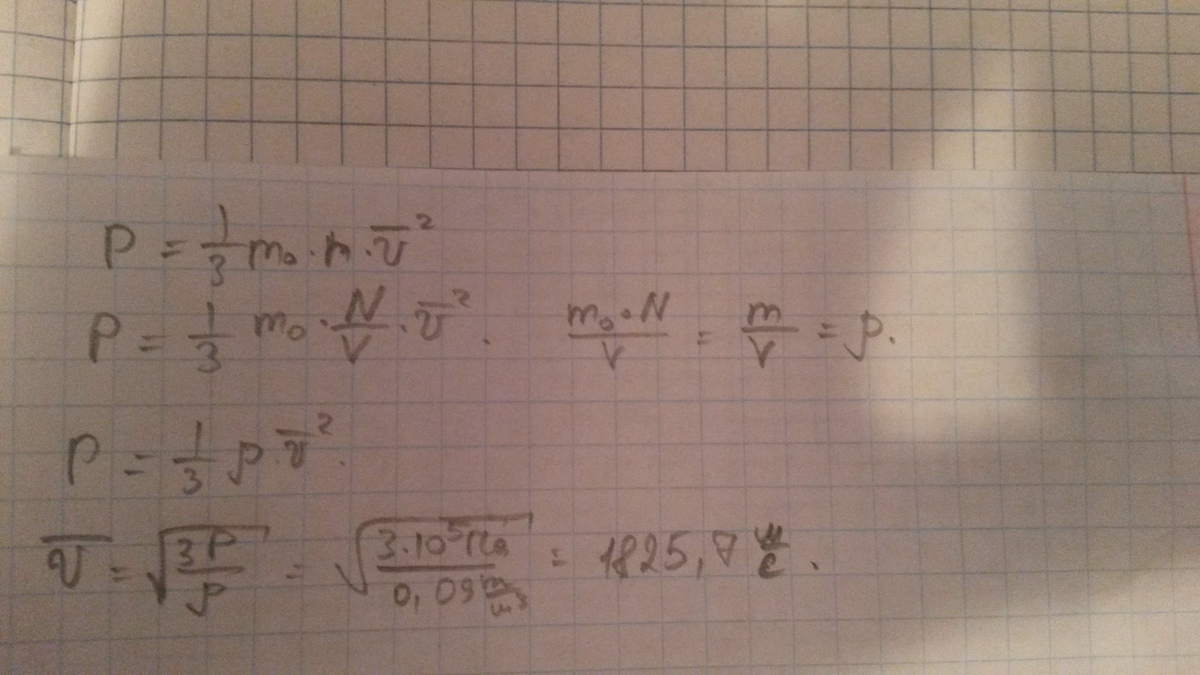 P = 1/3 m₀ · n · v̅²
P = 1/3 m₀ · N/V · v̅². m₀·N/V = m/V = ρ.
P = 1/3 ρ v̅².
v̅ = √(3P/ρ) = √(3·10⁵Па/0,09 кг/м³) = 1825,7 м/с.